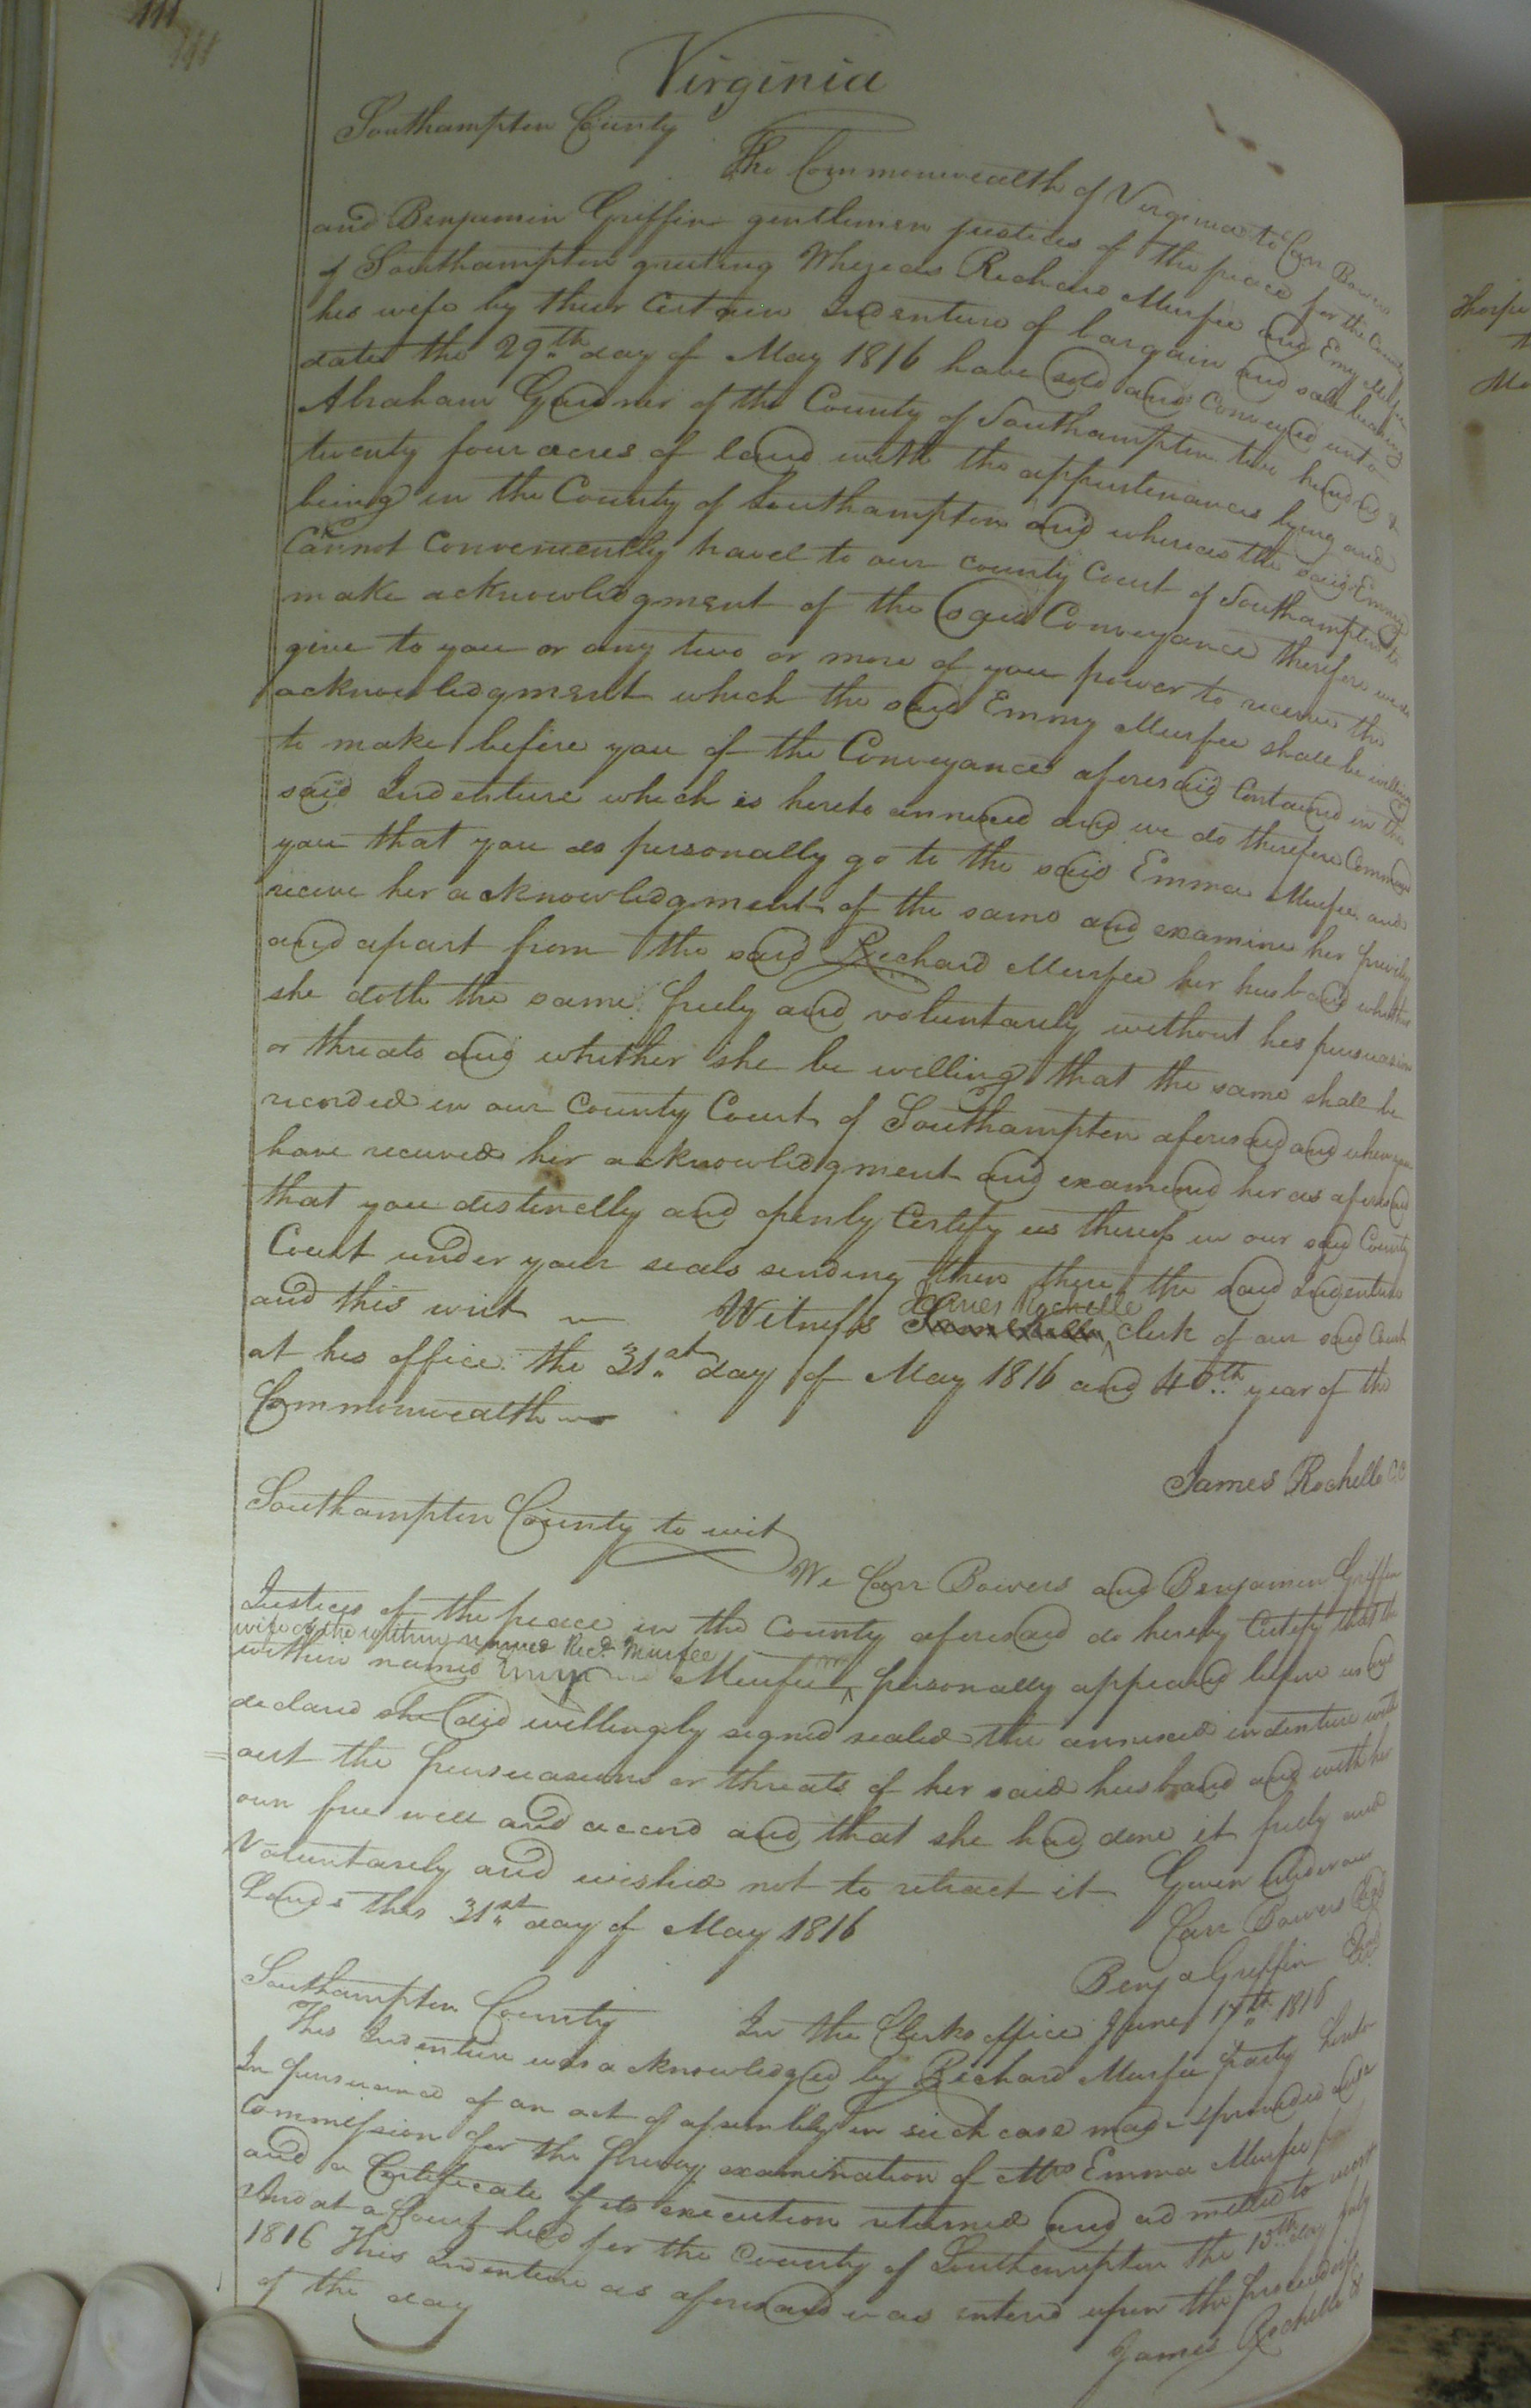 111
111
Virginia
Southampton County
The Commonwealth of Virginia to Carr Bowers
and Benjamin Griffin gentlemen justices of the peace for the County
of Southampton greeting Whereas Richard Murfee and Emmy Murfee
his wife by their certain Indenture of bargain and sale bearing
date the 29th day of May 1816 have sold and Conveyed unto
Abraham Gardner of the County of Southampton two hundred &
twenty four acres of land with the appurtenances lying and
being in the County of Southampton and whereas the said Emmy
Cannot Conveniently travel to our county Court of Southampton to
make acknowledgment of the said Conveyance therefore we do
give to you or any two or more of you power to receive the
acknowledgment which the said Emmy Murfee shall be willing
to make before you of the Conveyance aforesaid Contained in the
said Indenture which is hereto annexed and we do therefore Command
you that you do personally go to the said Emma Murfee and
receive her acknowledgment of the same and examine her privily
and apart from the said Richard Murfee her husband whether
she doth the same freely and voluntarily without his persuasions
or threats and whether she be willing that the same shall be
recorded in our County Court of Southampton aforesaid and when you
have received her acknowledgment and examined her as aforesaid
that you distinctly and openly Certify us thereof in our said County
Court under your seals sending then there the said Indenture
James Rochelle
and this writ Witness clerk of our said Court
at his office the 31st day of May 1816 and 40th year of the
Commonwealth
James Rochelle CC
Southampton County to wit
We Carr Bowers and Benjamin Griffin
Justices of the peace in the County aforesaid do hereby Certify that the
wife of the within named Ricd Murfee
within named Murfee personally appeared before us and
declared she did willingly signed sealed the annexed indenture with
=out the persuasions or threats of her said husband and with her
own free will and accord and that she had done it freely and
Voluntarily and wished not to retract it Given under our
hands this 31st day of May 1816
Carr Bowers
Benja Griffin
Southampton County In the Clerks office June 17th 1816
This Indenture was acknowledged by Richard Murfee party hereto
In pursuance of an act of assembly in such case made & provided and a
Commission for the privy examination of Mrs Emma Murfee
and a Certificate of its execution returned and admitted to record
And at a Court held for the County of Southampton the 15th day July
1816 This Indenture as aforesaid was entered upon the proceedings
of the day
James Rochelle
Thorpe